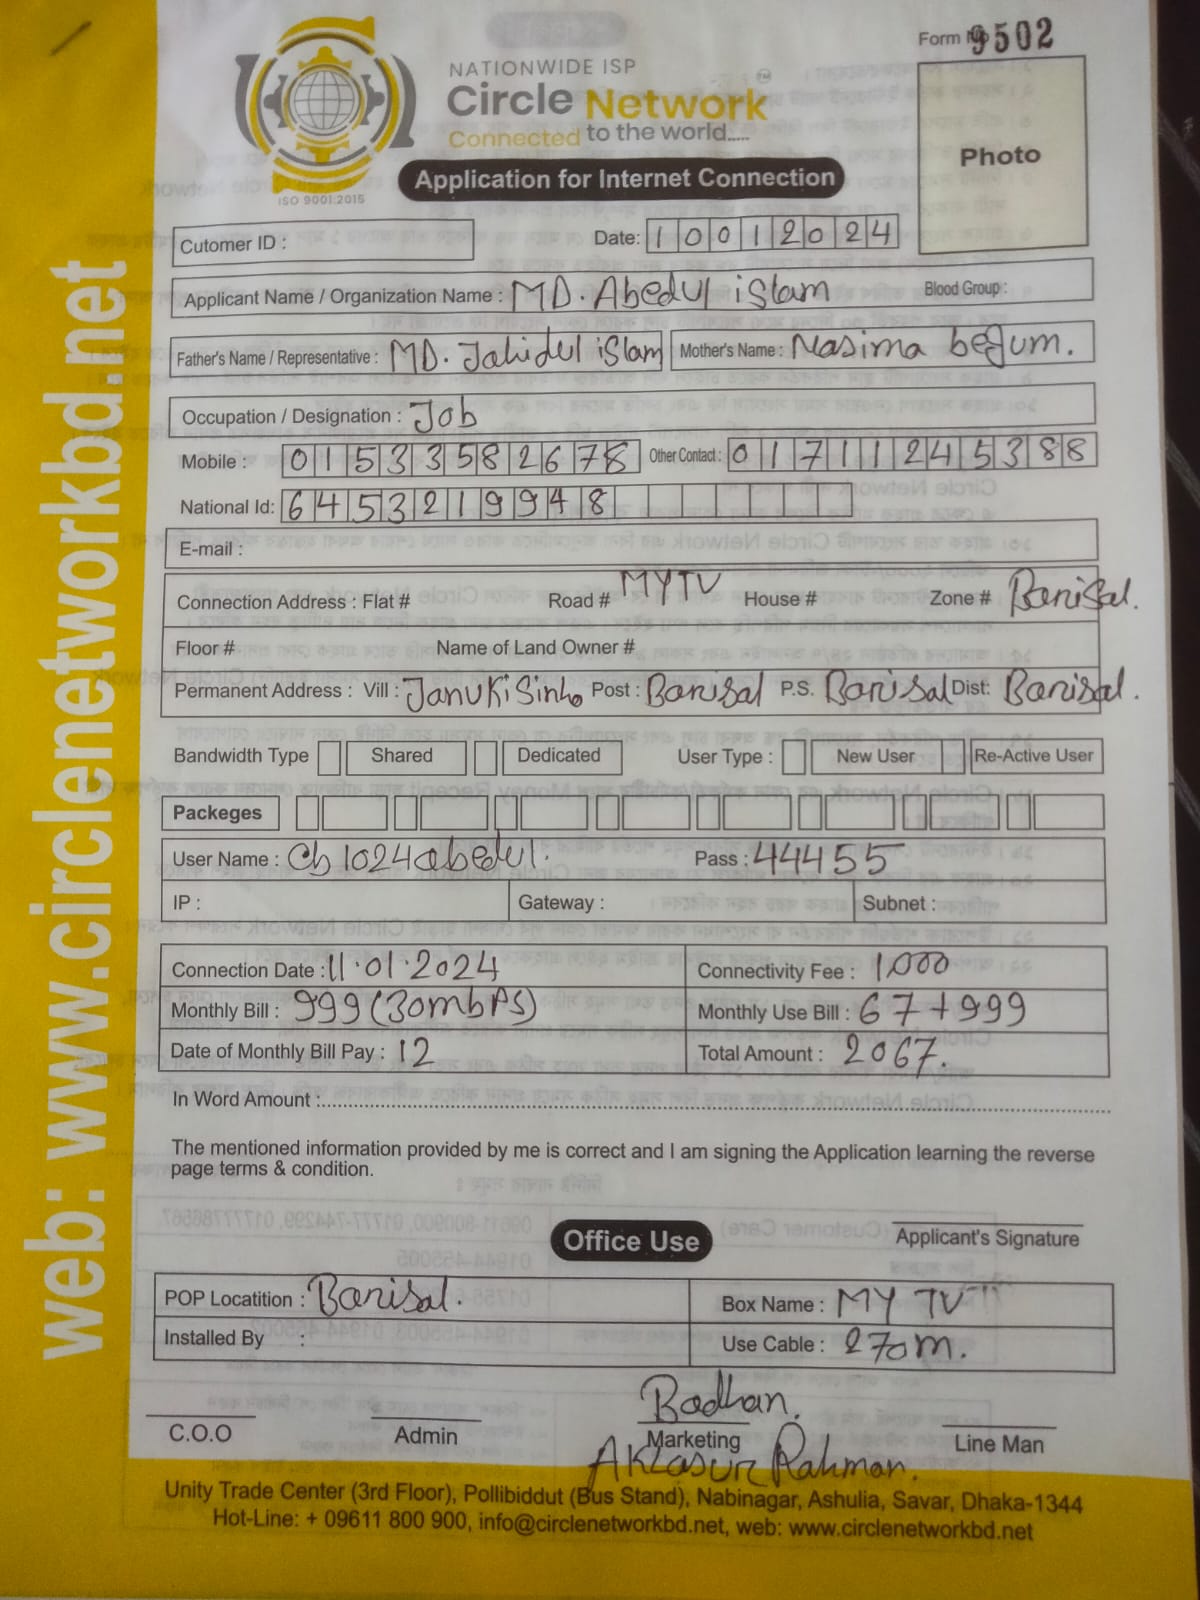 Form No 9502
NATIONWIDE ISP
Circle Network TM
Connected to the world.....
ISO 9001:2015
Application for Internet Connection
Photo
Cutomer ID :
Date: 10012024
Applicant Name / Organization Name : MD. Abedul islam Blood Group :
Father's Name / Representative : MD. Jahidul islam Mother's Name : Nasima begum.
Occupation / Designation : Job
Mobile : 01533582678 Other Contact : 01711245388
National Id: 6453219948
E-mail :
Connection Address : Flat # Road # MYTV House # Zone # Barisal.
Floor # Name of Land Owner #
Permanent Address : Vill : JanukiSinho Post : Barisal P.S. Barisal Dist: Barisal.
Bandwidth Type Shared Dedicated User Type : New User Re-Active User
Packeges
User Name : Cb1024abedul. Pass : 44455
IP : Gateway : Subnet :
Connection Date : 11.01.2024 Connectivity Fee : 1,000
Monthly Bill : 999 (30mbPS) Monthly Use Bill : 67+999
Date of Monthly Bill Pay : 12 Total Amount : 2067.
In Word Amount :
The mentioned information provided by me is correct and I am signing the Application learning the reverse
page terms & condition.
Applicant's Signature
Office Use
POP Locatition : Barisal. Box Name : MY TV
Installed By : Use Cable : 270m.
Badhan.
C.O.O Admin Marketing Line Man
Rahman.
Unity Trade Center (3rd Floor), Pollibiddut (Bus Stand), Nabinagar, Ashulia, Savar, Dhaka-1344
Hot-Line: + 09611 800 900, info@circlenetworkbd.net, web: www.circlenetworkbd.net
web: www.circlenetworkbd.net